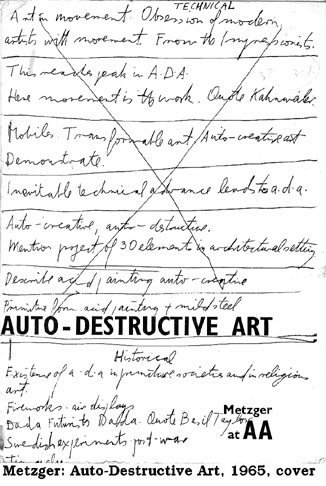 TECHNICAL
Art in movement. Obsession of modern
artists with movement. From the Impressionists.
This reaches peak in A.D.A.
Here movement is the work. Quote Kahnweiler.
Mobiles. Transformable art, Auto-creative art
Demonstrate.
Inevitable technical advance leads to a.d.a.
Auto-creative, auto-dstructive.
Mention project of 3D element in architectural setting
Describe acid painting auto-creative
Primitive form acid painting + mild steel
AUTO-DESTRUCTIVE ART
Historical
Existence of a-d-a in primitive societies and in religious
art.
Fireworks-air display
Dada Futurists Dada. Quote Basil Taylor
Swedish experiments post-war
Metzger
at AA
Metzger: Auto-Destructive Art, 1965, cover